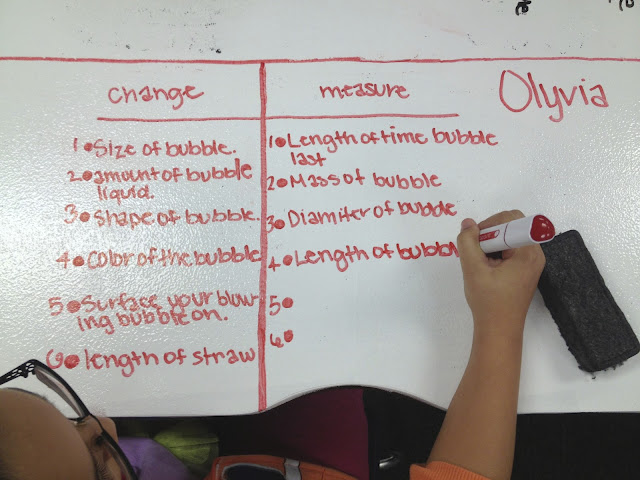 change
measure
Olyvia
1•Size of bubble.
2•amount of bubble
liquid.
3•Shape of bubble.
4•Color of the bubble
5•Surface your blow-
ing bubble on.
6•length of straw
1•Length of time bubble
last
2•Mass of bubble
3•Diamiter of bubble
4•Length of
5•
6•